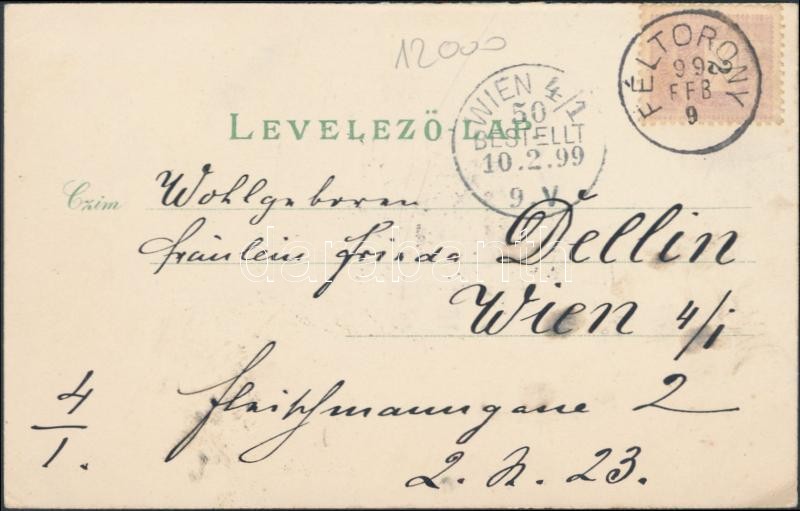 12000
FÉLTORONY
99
FEB
9
WIEN 4/1
50
BESTELLT
10.2.99
9.V
LEVELEZŐ-LAP.
Czim
Wohlgeboren
Fräulein Frieda Dellin
darabanth
Wien 4/1
4/1.
Fleischmanngasse 2
2. St. 23.